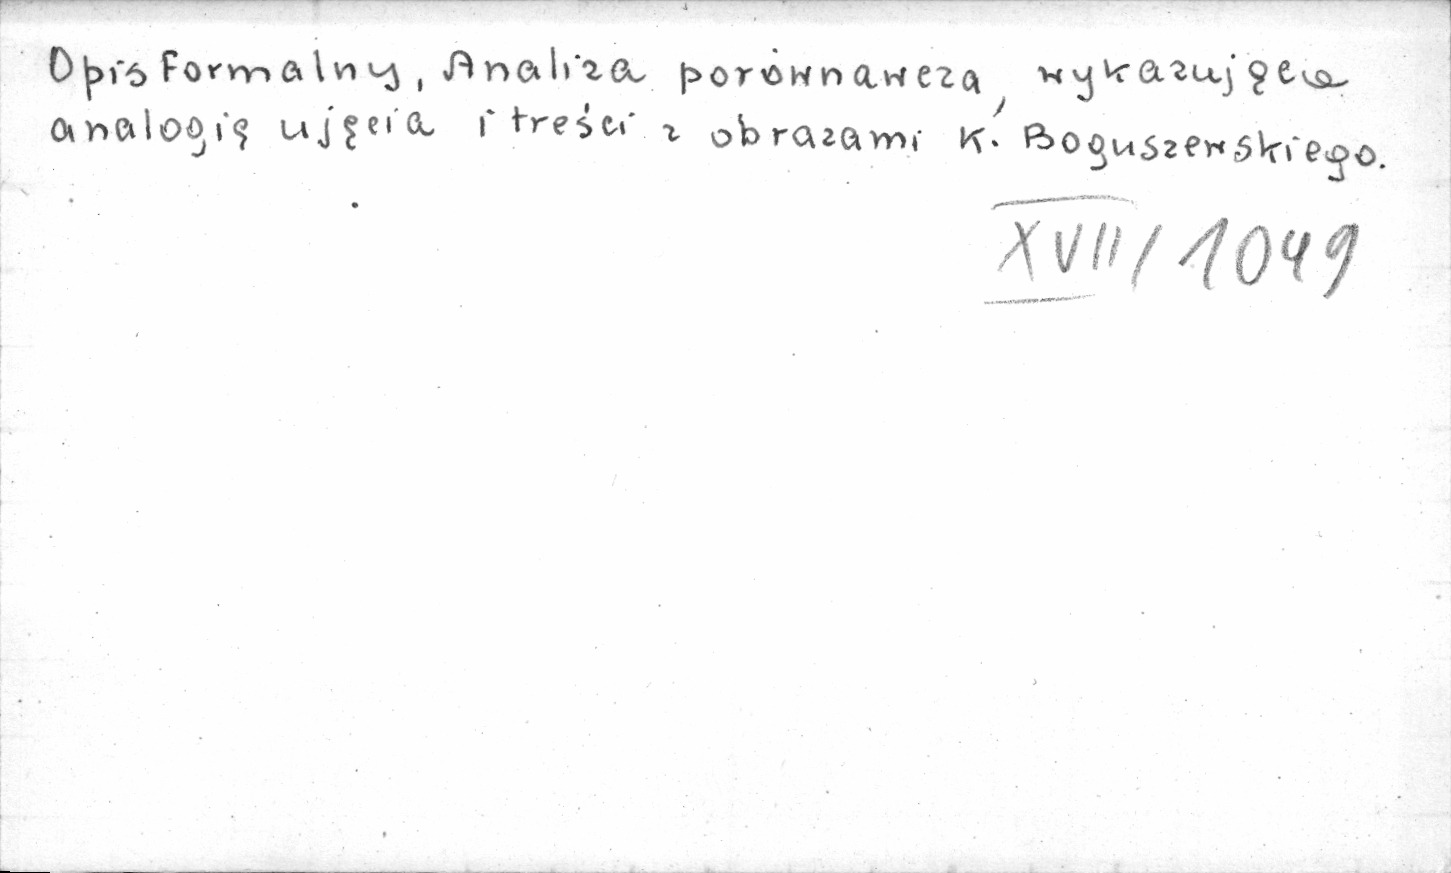 Opis formalny, Analiza porównawcza, wykazująca
analogię ujęcia i treści z obrazami K. Boguszewskiego.
XVII/1049